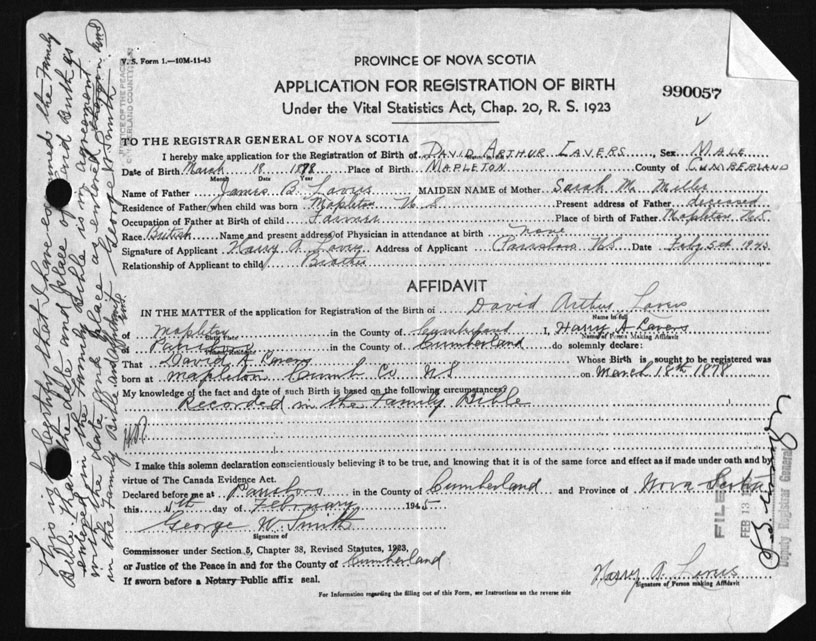 V. S. Form 1.—10M-11-43
PROVINCE OF NOVA SCOTIA
APPLICATION FOR REGISTRATION OF BIRTH
990057
Under the Vital Statistics Act, Chap. 20, R. S. 1923
TO THE REGISTRAR GENERAL OF NOVA SCOTIA
I hereby make application for the Registration of Birth of DAVID ARTHUR LAVERS, Sex MALE
Date of Birth March 18 1878 Place of Birth MAPLETON County of CUMBERLAND
Month Date Year
Name of Father James B. Lavers MAIDEN NAME of Mother Sarah M. Miller
Residence of Father when child was born Mapleton N S Present address of Father deceased
Occupation of Father at Birth of child Farmer Place of birth of Father Mapleton N.S
Race British Name and present address of Physician in attendance at birth none
Signature of Applicant Harry A. Lavers Address of Applicant Parrsboro N S Date Feby 5th
Relationship of Applicant to child Brother
AFFIDAVIT
IN THE MATTER of the application for Registration of the Birth of David Arthur Lavers
Name in full
of Mapleton in the County of Cumberland I, Harry A Lavers
Birth Place Name of Person Making Affidavit
of Parrsboro in the County of Cumberland do solemnly declare:
That David A Lavers Whose Birth is sought to be registered was
born at Mapleton Cumb Co NS on March 18th 1878
My knowledge of the fact and date of such Birth is based on the following circumstances?
Recorded in the Family Bible
I make this solemn declaration conscientiously believing it to be true, and knowing that it is of the same force and effect as if made under oath and by
virtue of The Canada Evidence Act.
Declared before me at Parrsboro in the County of Cumberland and Province of Nova Scotia
this 5th day of February 1945
George W. Smith
Signature of
Commissoner under Section 5, Chapter 38, Revised Statutes, 1923.
or Justice of the Peace in and for the County of Cumberland
If sworn before a Notary Public affix seal.
Harry A. Lavers
Signature of Person making Affidavit
For Information regarding the filling out of this Form, see Instructions on the reverse side
This is to Certify that I have examined the Family
Bible. That the date and place of said Birth as
entered in the Family Bible is in agreement
with the date and place as entered
in the Family Bible George W Smith
JUSTICE OF THE PEACE
CUMBERLAND COUNTY
FILED
FEB 13
Deputy Registrar General